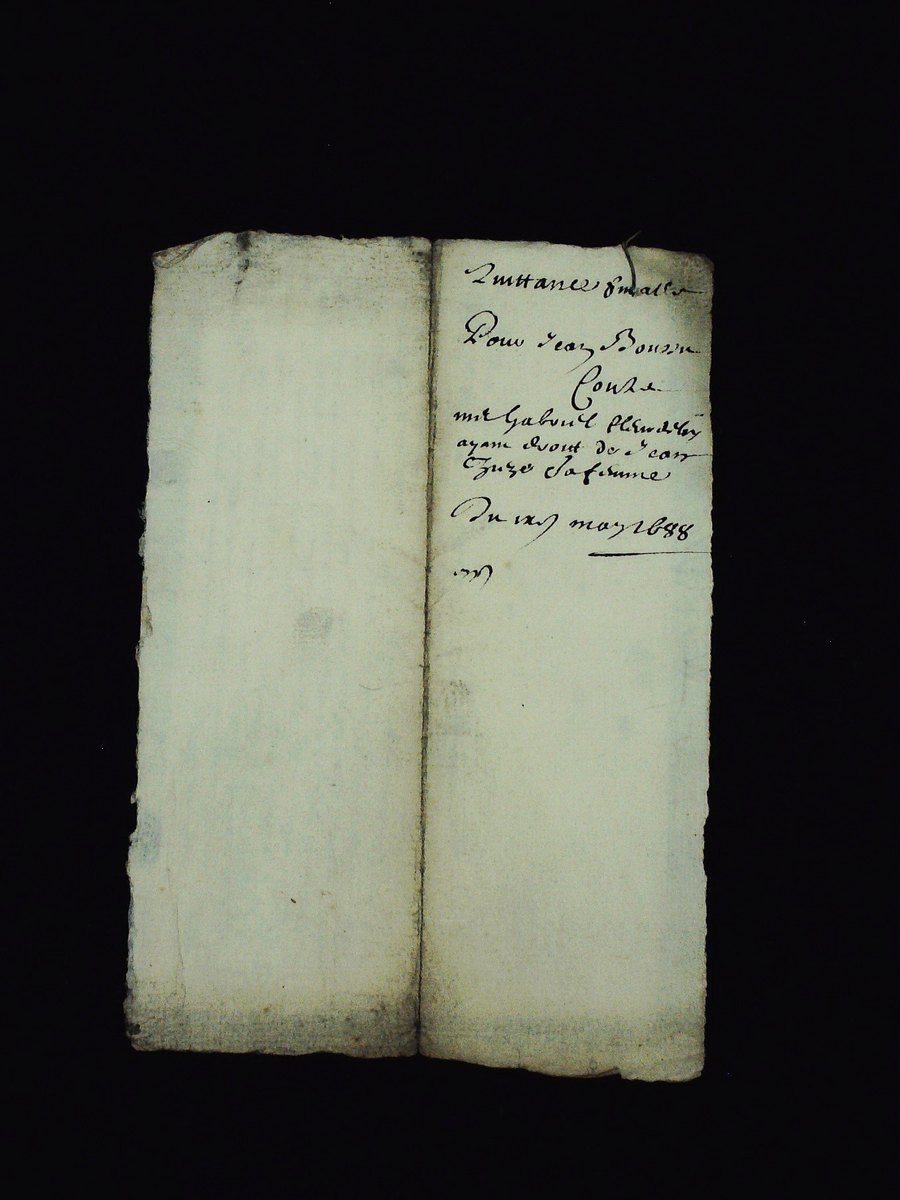 Quittance finalle
Pour Jean
Contre
me Gabriel
ayant droitt de Jean
Sa femme
Du may 1688